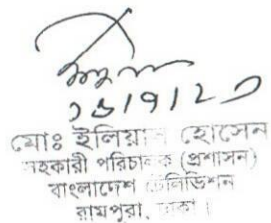 ১৬/৭/২০
মোঃ ইলিয়াস হোসেন
সহকারী পরিচালক (প্রশাসন)
বাংলাদেশ টেলিভিশন
রামপুরা, ঢাকা।